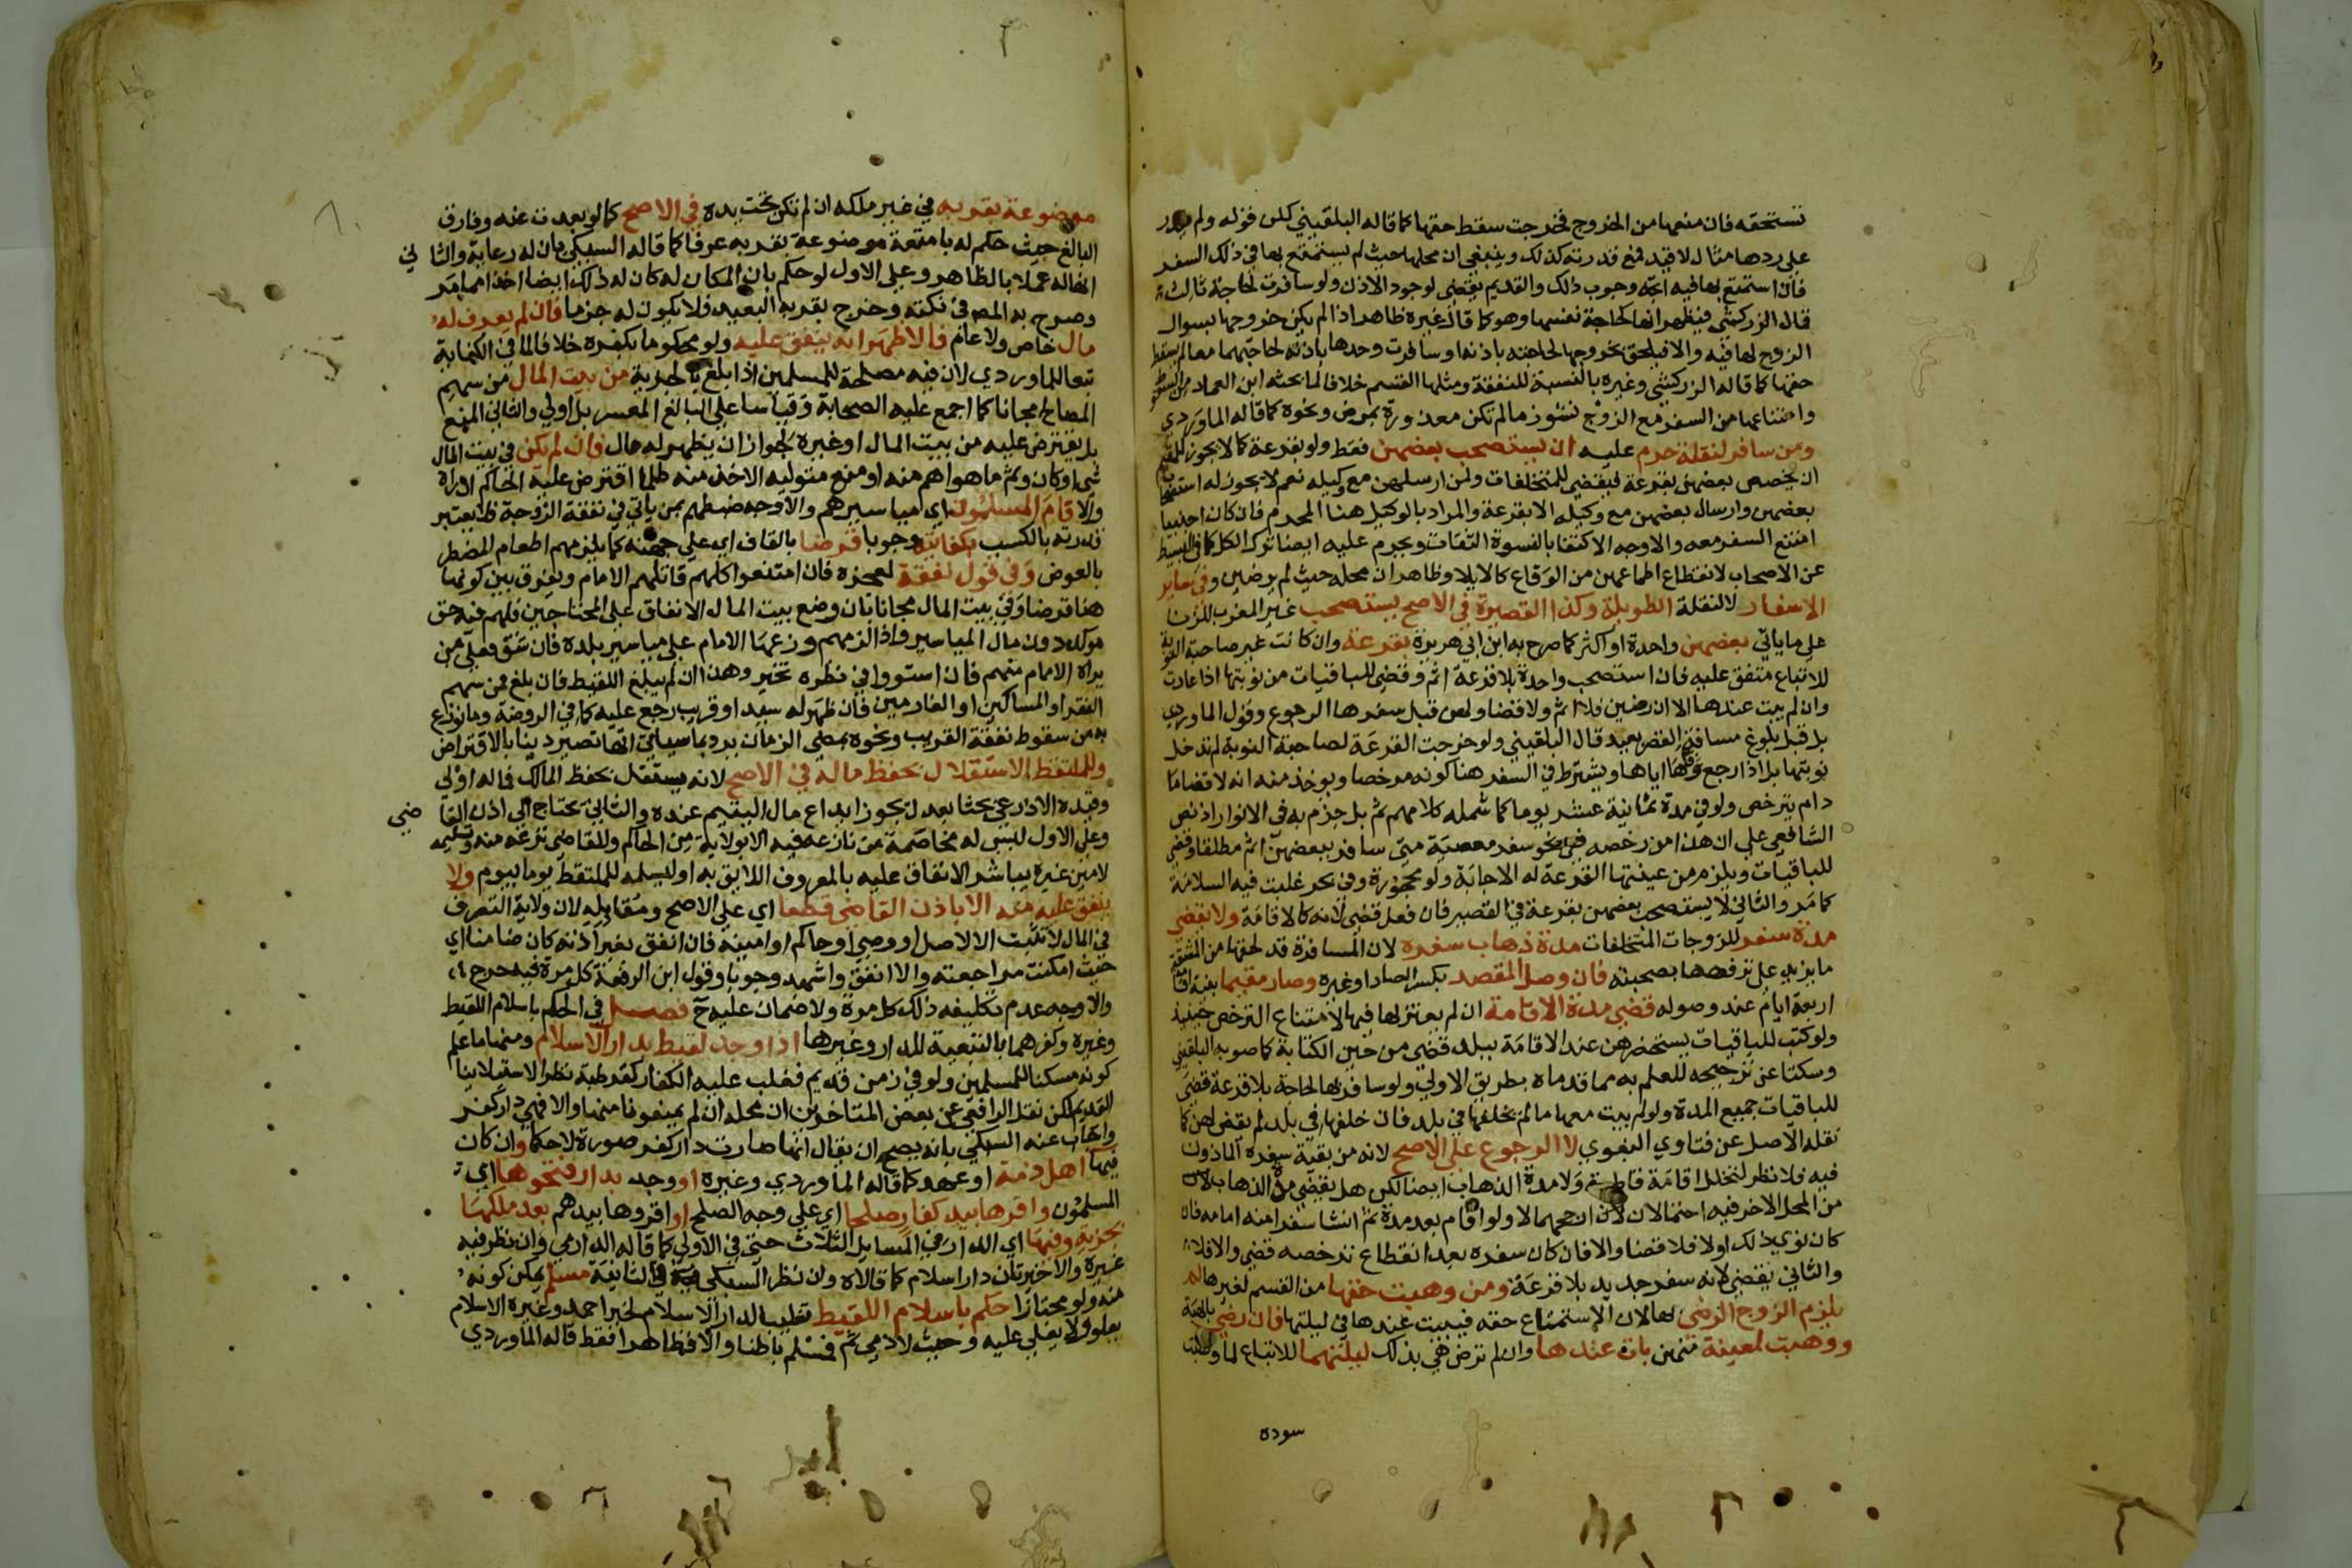 تستحقه فان منعها من الخروج فخرجت سقط حقها كما قاله البلقيني كلن قوله ولم يقدر
على ردها مثال لا قيد فمع قدرته كذلك وينبغي ان محلها حيث لم يستمتع بها في ذلك السفر
فان استمتع بها فيه اتجه وجوب ذلك والقديم يقضي لوجود الاذن ولو سافرت لحاجة ثالث
قال الزركشي فيظهر انها كحاجة نفسها وهو كما قال غيره ظاهر اذا لم يكن خروجها بسوال
الزوج لها فيه والا فيلحق بخروجها لحاجته باذنه او سافرت وحدها باذنه لحاجتهما معا لم يسقط
حقها كما قاله الزركشي وغيره بالنسبة للنفقة ومثلها القسم خلافا لما بحثه ابن العماد من السقوط
وامتناعها من السفر مع الزوج نشوز ما لم تكن معذورة بمرض ونحوه كما قاله الماوردي
ومن سافر لنقلة حرم عليه ان يستصحب بعضهن فقط ولو بقرعة كما لا يجوز للمقيم
ان يخصص بعضهن بقرعة فيقضي للمتخلفات ولمن ارسلهن مع وكيله نعم لا يجوز له استصحاب
بعضهن وارسال بعضهن مع وكيله الا بقرعة والمراد بالوكيل هنا المحرم فان كان اجنبيا
امتنع السفر معه والاوجه الاكتفا بالنسوة الثقات ويحرم عليه ايضا ترك الكل كما في البسيط
عن الاصحاب لانقطاع اطماعهن من الوقاع كالايلا وظاهر ان محله حيث لم يرضين وفي ساير
الاسفار لا لنقلة الطويلة وكذا القصيرة في الاصح يستصحب غير المغرب للزنا
على ما ياتي بعضهن واحدة او اكثر كما صرح به ابن ابي هريرة بقرعة وان كانت غير صاحبة النوبة
للاتباع متفق عليه فان استصحب واحدة بلا قرعة اثم وقضى للباقيات من نوبتها اذا عادت
وان لم يبت عندها الا ان رضين فلا اثم ولا قضا ولهن قبل سفرها الرجوع وقول الماوردي
بل قبل بلوغ مسافة القصر بعيد قال البلقيني ولو خرجت القرعة لصاحبة النوبة لم تدخل
نوبتها بل اذا رجع وفاها اياها ويشترط في السفر هنا كونه مرخصا ويوخذ منه انه لا قضا ما
دام يترخص ولو في مدة ثمانية عشر يوما كما شمله كلامهم ثم بل جزم به في الانوار اذ نص
الشافعي على ان هذا من رخصه ففي نحو سفر معصية متى سافر ببعضهن اثم مطلقا وقضى
للباقيات ويلزم من عينتها القرعة له الاجابة ولو محجورة وفي بحر غلبت فيه السلامة
كما مر والثاني لا يستصحب بعضهن بقرعة في القصير فان فعل قضى لانه كالاقامة ولا يقضي
مدة سفر للزوجات المتخلفات مدة ذهاب سفره لان المسافرة قد لحقها من المشقة
ما يزيد على ترفهها بصحبته فان وصل المقصد بكسر الصاد او غيره وصار مقيما بنية اقامة
اربعة ايام عند وصوله قضى مدة الاقامة ان لم يعتزلها فيها لامتناع الترخص حينئذ
ولو كتب للباقيات يستحضرهن عند الاقامة ببلد قضى من حين الكتابة كما صوبه البلقيني
وسكتا عن ترجيحه للعلم به مما قدماه بطريق الاولى ولو سافر بها لحاجة بلا قرعة قضى
للباقيات جميع المدة ولو لم يبت معها ما لم يخلفها في بلد فان خلفها في بلد لم يقض لهن كما
نقله الاصل عن فتاوي البغوي لا الرجوع على الاصح لانه من بقية سفره الماذون
فيه فلا نظر لتخلل اقامة قاطعة ولا مدة الذهاب ايضا لكن هل يقضي مدة الذهاب لان
من المحل الاخر فيه احتمالان لان ارجحهما لا ولو اقام بعد مدة ثم انشا سفرا منه امامه فان
كان نوى ذلك اولا فلا قضا والا فان كان سفره بعد انقطاع ترخصه قضى والا فلا
والثاني يقضي لانه سفر جديد بلا قرعة ومن وهبت حقها من القسم لغيرها لم
يلزم الزوج الرضى لها لان الاستمتاع حقه فيبيت عندها في ليلتها فان رضي بالهبة
ووهبت لمعينة منهن بات عندها وان لم ترض هي بذلك ليلتيهما للاتباع لما وهبت
سودة
موضوعة بقربه في غير ملكه ان لم تكن تحت يده في الاصح كما لو بعدت عنه وفارق
البالغ حيث حكم له بامتعة موضوعة بقربه عرفا كما قاله السبكي بان له رعاية والثاني
انها له عملا بالظاهر وعلى الاول لو حكم بان المكان له كان له ذلك ايضا اخذا مما مر
وصرح به المصنف في نكته وخرج بقربه البعيد فلا يكون له جزما فان لم يعرف له
مال خاص ولا عام فالاظهر انه ينفق عليه ولو محكوما بكفره خلافا لما في الكفاية
تبعا للماوردي لان فيه مصلحة للمسلمين اذا بلغ بالجزية من بيت المال من سهم
المصالح مجانا كما اجمع عليه الصحابة وقياسا على البالغ المعسر بل اولى والثاني المنع
بل يقترض عليه من بيت المال او غيره لجواز ان يظهر له مال فان لم يكن في بيت المال
شي او كان وثم ما هو اهم منه او منع متوليه الاخذ منه ظلما اقترض عليه الحاكم ان راه
والا قام المسلمون اي مياسيرهم والاوجه ضبطهم بمن ياتي في نفقة الزوجة فلا يعتبر
قدرته بالكسب بكفايته وجوبا قرضا بالقاف اي على جهته كما يلزمهم اطعام المضطر
بالعوض وفي قول نفقة لعجزه فان امتنعوا كلهم قاتلهم الامام ويفرق بين كونها
هنا قرضا وفي بيت المال مجانا بان وضع بيت المال الانفاق على المحتاجين فلهم فيه حق
موكد دون مال المياسير واذا لزمهم وزعها الامام على مياسير بلده فان شق فعلى من
يراه الامام منهم فان استووا في نظره تخير وهذا ان لم يبلغ اللقيط فان بلغ فمن سهم
الفقرا والمساكين او الغارمين فان ظهر له سيد او قريب رجع عليه كما في الروضة وما نوزع
به من سقوط نفقة القريب ونحوه بمضي الزمان يرد بما سياتي انها تصير دينا بالاقتراض
وللملتقط الاستقلال بحفظ ماله في الاصح لانه يستقل بحفظ المالك فماله اولى
وقيده الاذرعي بحثا بعدل يجوز ايداع مال اليتيم عنده والثاني يحتاج الى اذن القاضي
وعلى الاول ليس له مخاصمة من نازعه فيه الا بولاية من الحاكم وللقاضي نزعه منه وتسليمه
لامين غيره يباشر الانفاق عليه بالمعروف اللايق به او ليسلمه للملتقط يوما بيوم ولا
ينفق عليه منه الا باذن القاضي قطعا اي على الاصح ومقابله لان ولاية التصرف
في المال لا تثبت الا لاصل او وصي او حاكم او امينه فان انفق بغير اذنه كان ضامنا اي
حيث امكنت مراجعته والا انفق واشهد وجوبا وقول ابن الرفعة كل مرة فيه حرج
والاوجه عدم تكليفه ذلك كل مرة ولا ضمان عليه ح فصل في الحكم باسلام اللقيط
وغيره وكفرهما بالتبعية للدار وغيرها اذا وجد لقيط بدار الاسلام ومنها ما علم
كونه مسكنا للمسلمين ولو في زمن قديم فغلب عليه الكفار كقرطبة نظرا لاستيلاينا
القديم لكن نقل الرافعي عن بعض المتاخرين ان محله ان لم يمنعونا منها والا فهي دار كفر
واجاب عنه السبكي بانه يصح ان يقال انها صارت دار كفر صورة لا حكما وان كان
فيها اهل ذمة او عهد كما قاله الماوردي وغيره او وجد بدار فتحوها اي
المسلمون واقرها بيد كفار صلحا اي على وجه الصلح او اقروها بيدهم بعد ملكها
بجزية وفيها اي الدار في المسايل الثلاث حتى في الاولى كما قاله الدارمي وان نظر فيه
غيره والاخيرتان دار اسلام كما قالاه وان نظر السبكي فيه في الثانية مسلم يمكن كونه
منه ولو مجتازا حكم باسلام اللقيط تغليبا لدار الاسلام لخبر احمد وغيره الاسلام
يعلو ولا يعلى عليه وحيث لا ذمي ثم فمسلم باطنا والا فظاهرا فقط قاله الماوردي